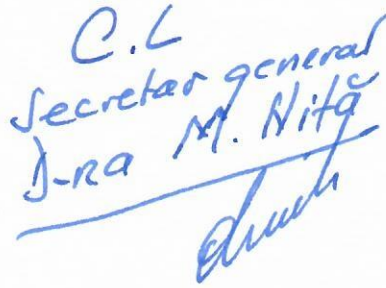 C.L
Secretar general
D-na M. Niță